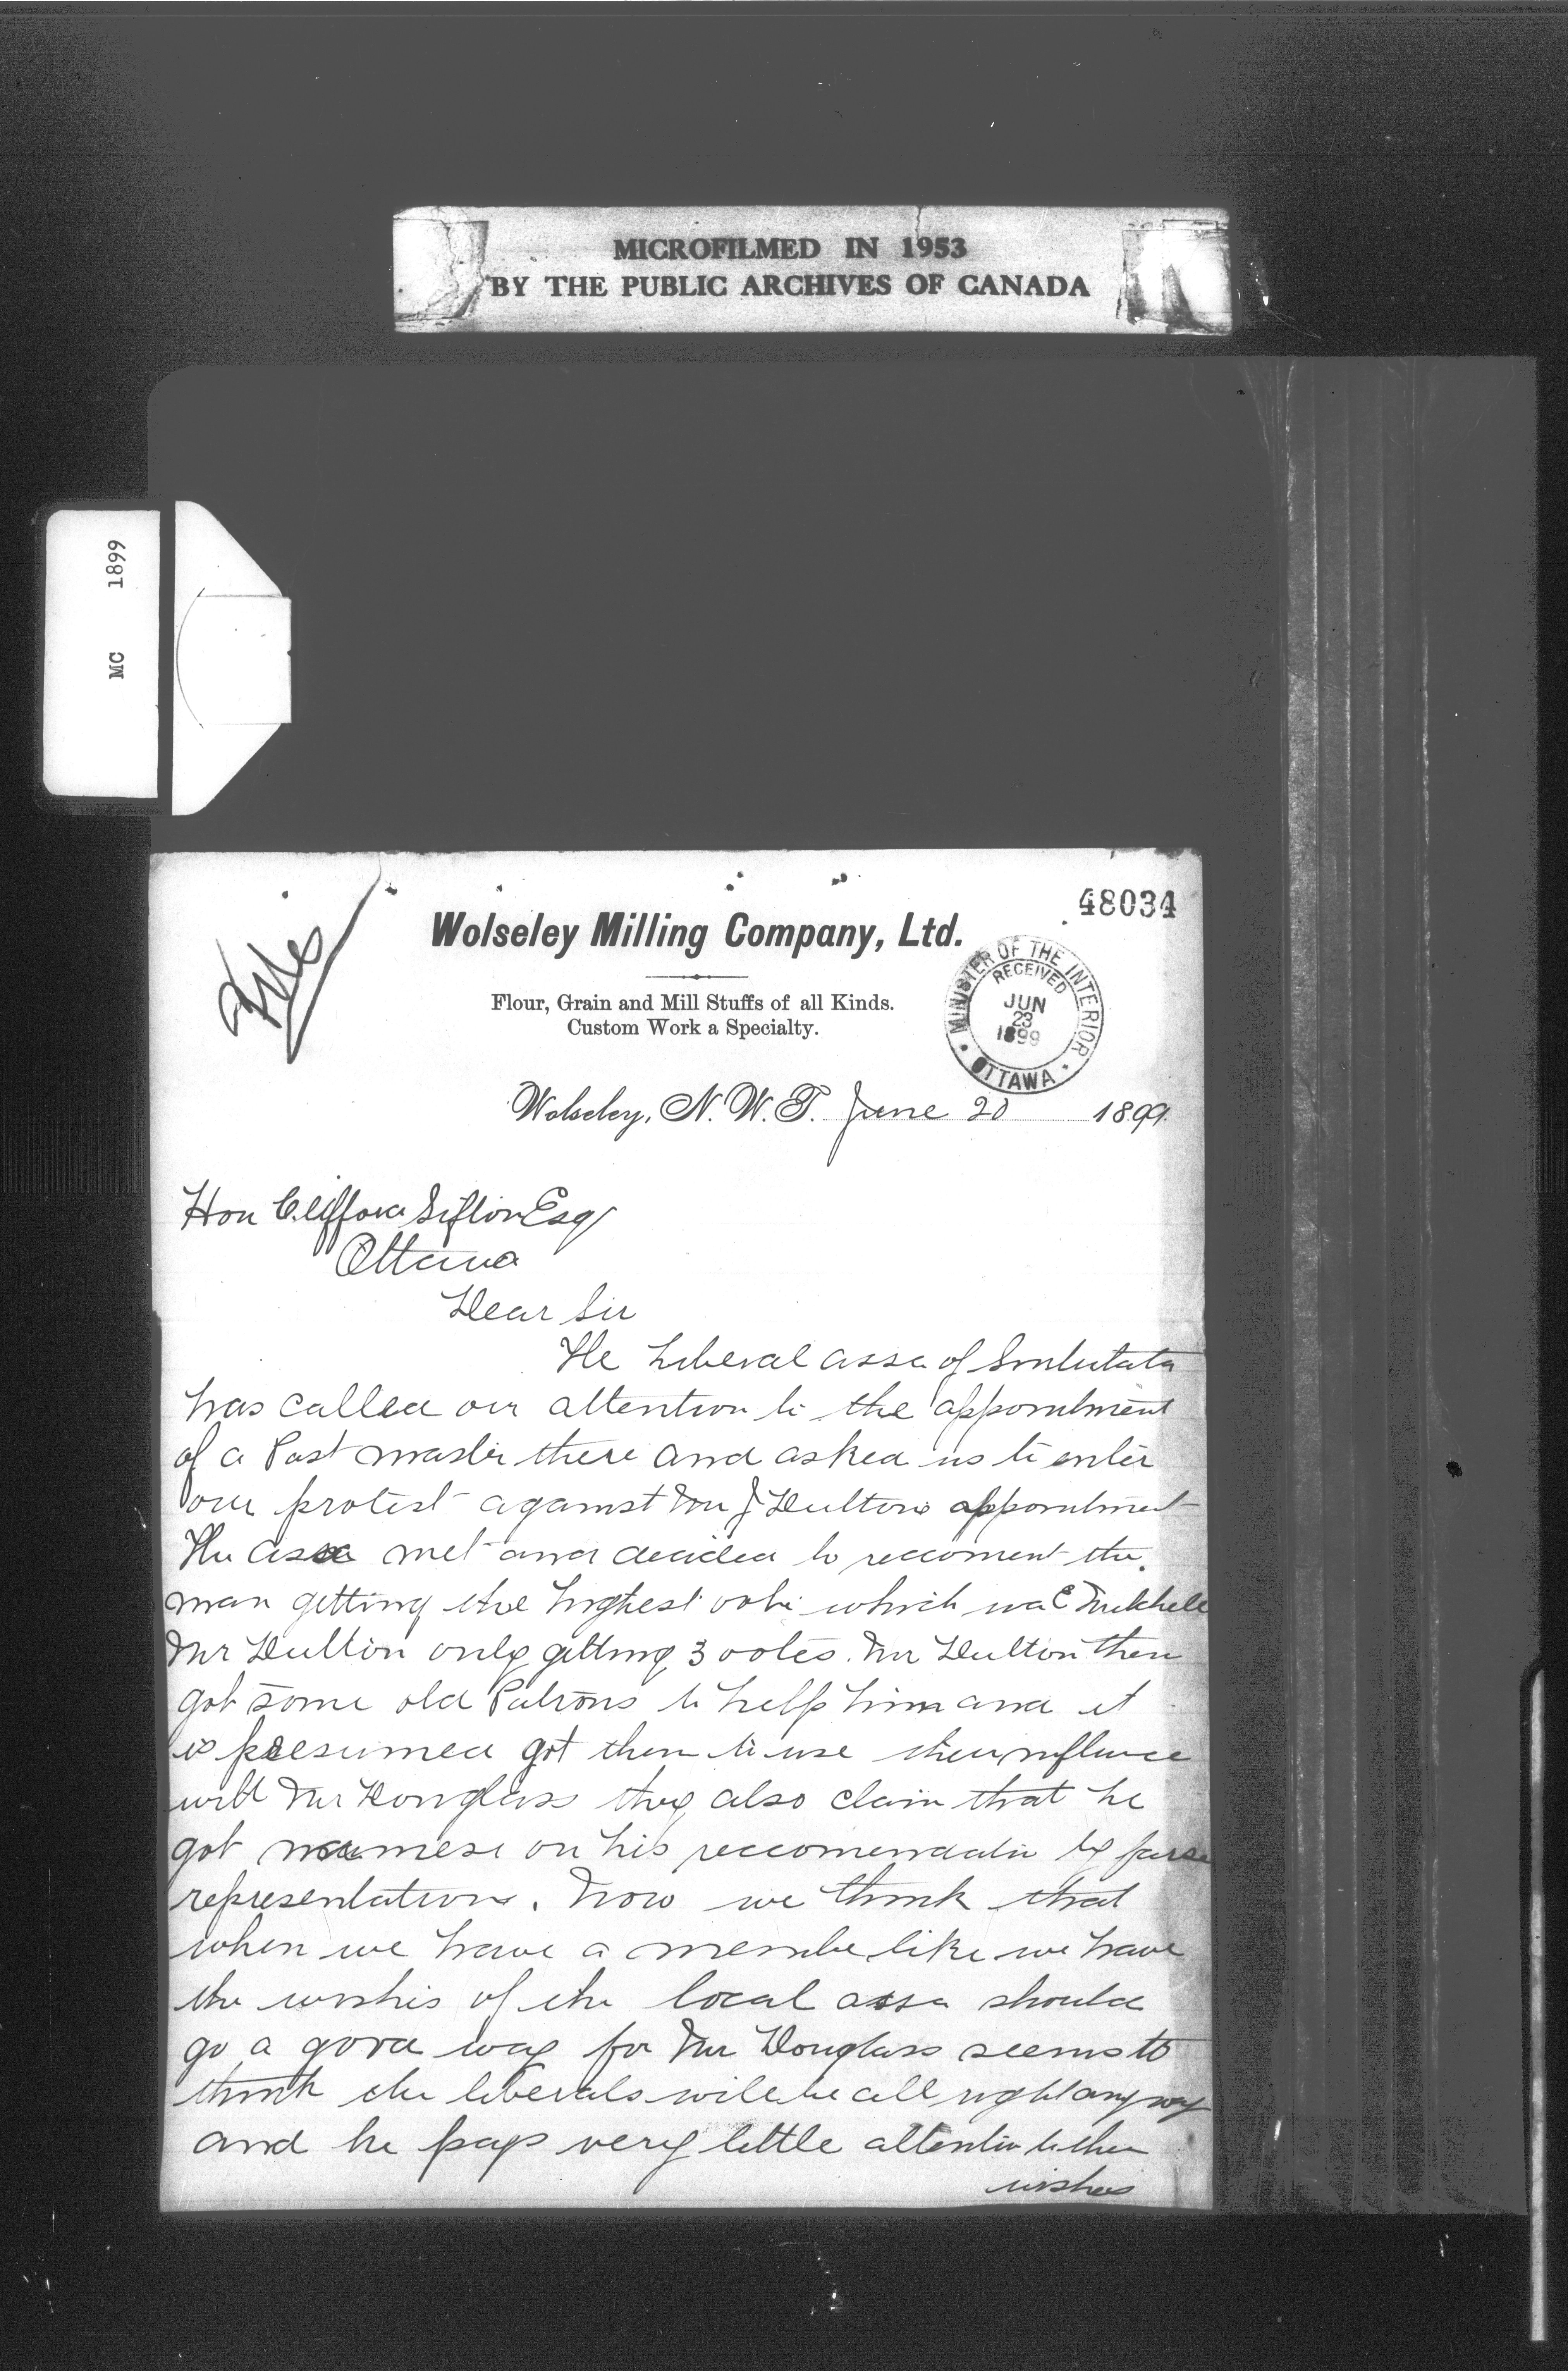 MICROFILMED IN 1953
BY THE PUBLIC ARCHIVES OF CANADA
MC 1899
File
48034
Wolseley Milling Company, Ltd.
Flour, Grain and Mill Stuffs of all Kinds.
Custom Work a Specialty.
MINISTER OF THE INTERIOR
RECEIVED
JUN
23
1899
OTTAWA
Wolseley, N.W.T. June 20 1899
Hon Clifford Sifton Esq
Ottawa
Dear Sir
The Liberal assn of Sintaluta
has called our attention to the appointment
of a Post master there and asked us to enter
our protest against Mr J Dulton's appointment
The assn met and decided to reccoment the
man getting the highest vote which was C Mitchell
Mr Dulton only getting 3 votes. Mr Dulton then
got some old Patrons to help him and it
is presumed got them to use their influence
with Mr Douglass they also claim that he
got names on his reccomendation by false
representations. Now we think that
when we have a member like we have
the wishes of the local assn should
go a good way for Mr Douglass seems to
think the liberals will be all right anyway
and he pays very little attention to their
wishes